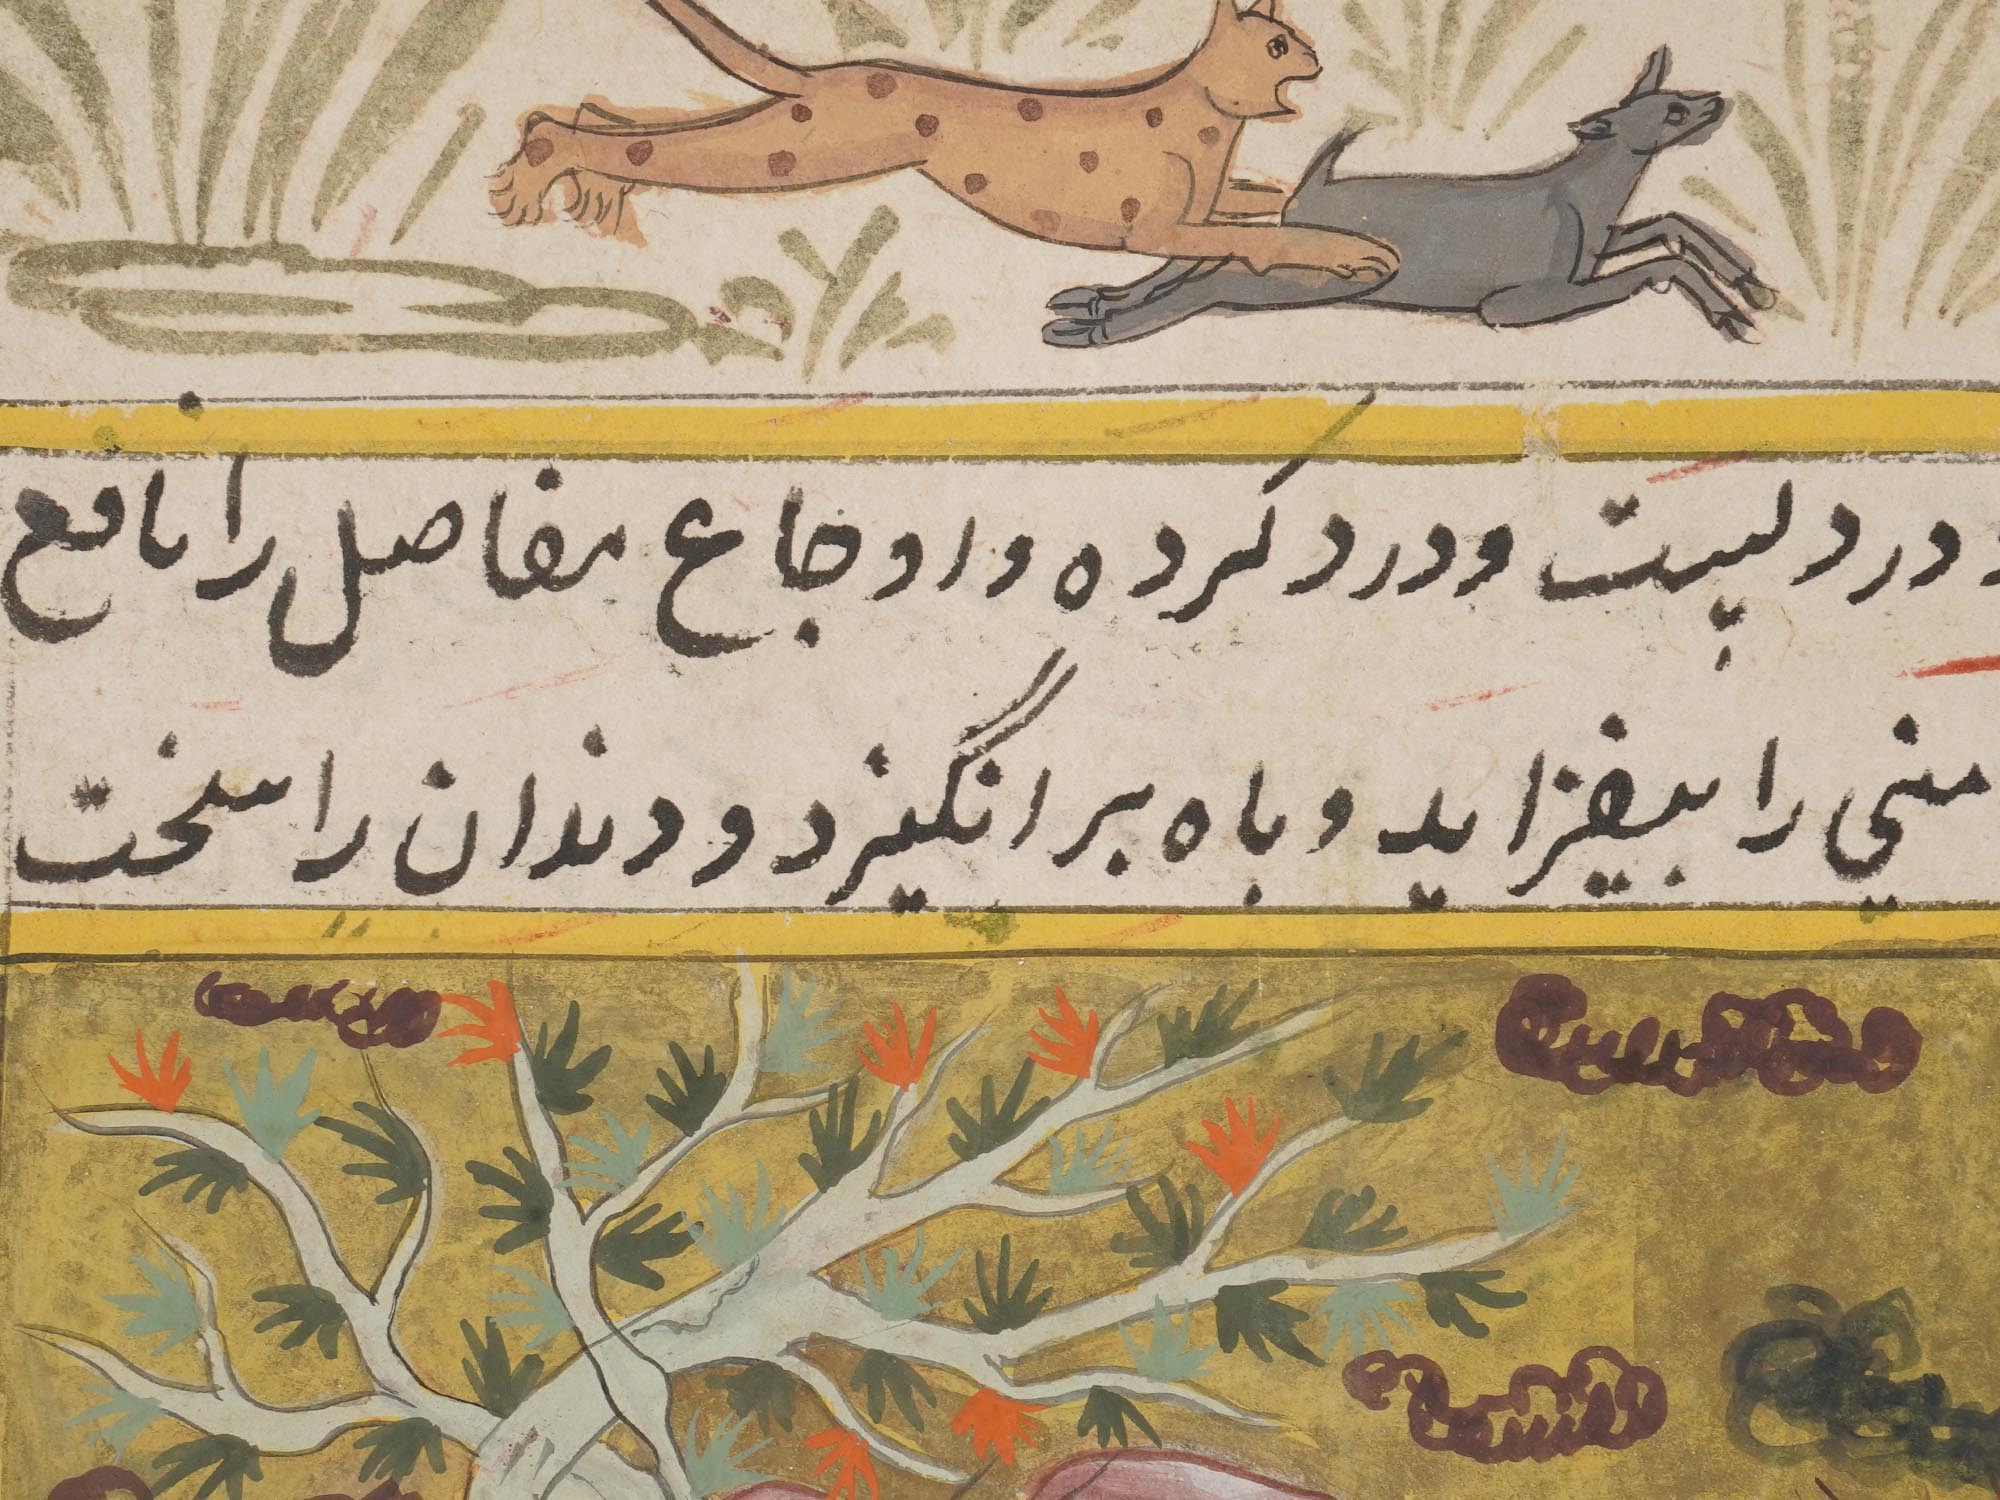 و درد پست ودرد کرده و اوجاع مفاصل را نافع
منی را بیفزاید و باه برانگیزد و دندان را سخت